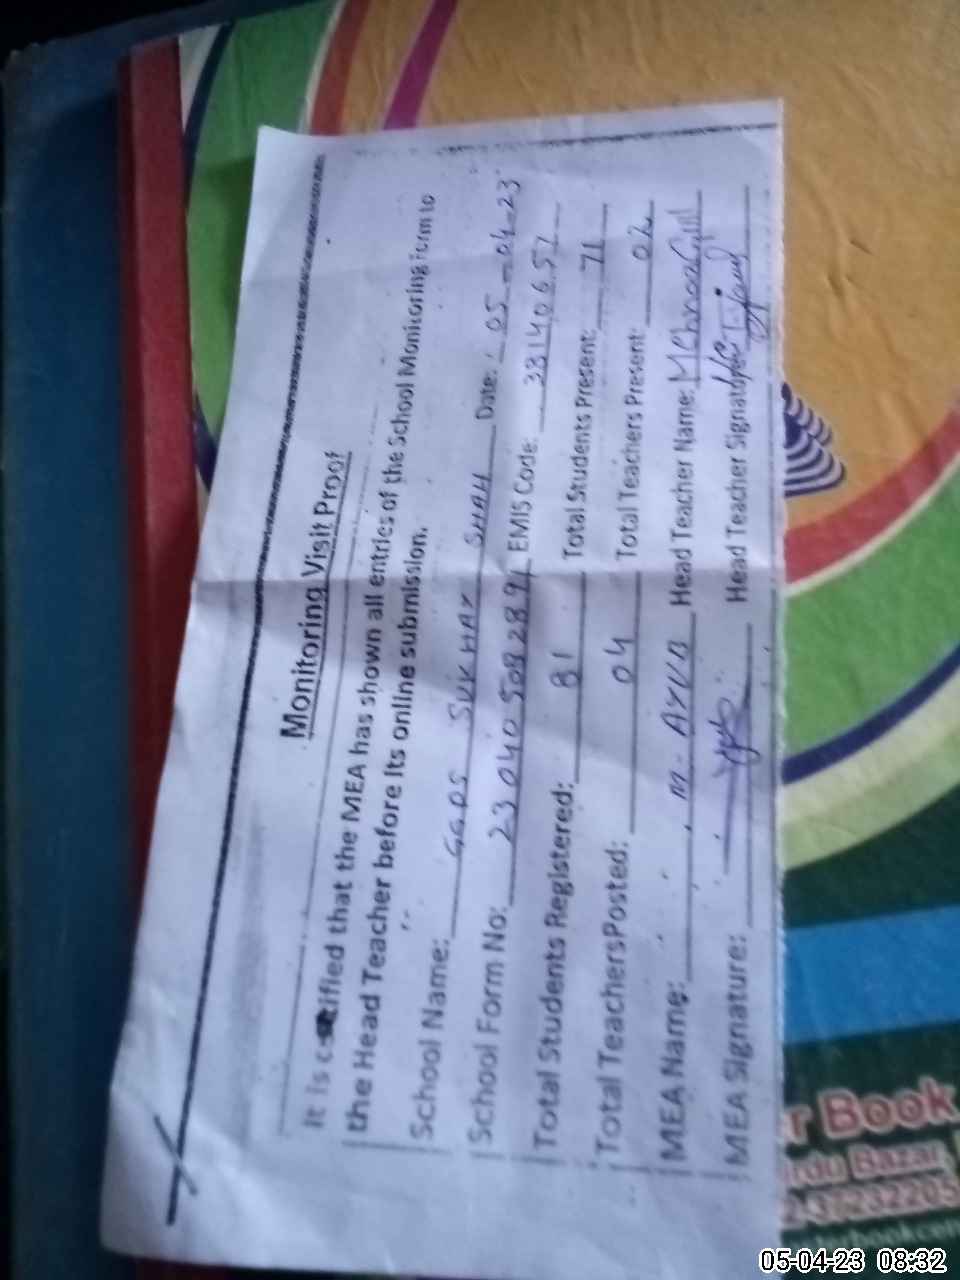 Monitoring Visit Proof
It is certified that the MEA has shown all entries of the School Monitoring Form to
the Head Teacher before its online submission.
School Name: GGPS SUKHAY SHAH Date: 05-04-23
School Form No: 230405082891 EMIS Code: 38140657
Total Students Registered: 81 Total Students Present: 71
Total TeachersPosted: 04 Total Teachers Present: 02
MEA Name: M. AYUB Head Teacher Name:
MEA Signature: Head Teacher Signature:
r Book
rdu Bazar,
2-37232205
sterbook
05-04-23 08:32